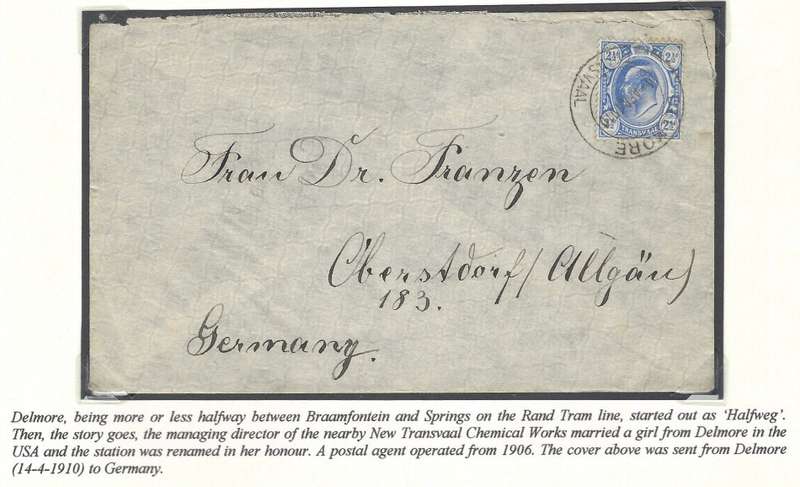 2½
2½
TRANSVAAL
SVAAL
MORE
Frau Dr. Franzen
Oberstdorf / Allgäu)
183.
Germany.
Delmore, being more or less halfway between Braamfontein and Springs on the Rand Tram line, started out as ‘Halfweg’.
Then, the story goes, the managing director of the nearby New Transvaal Chemical Works married a girl from Delmore in the
USA and the station was renamed in her honour. A postal agent operated from 1906. The cover above was sent from Delmore
(14-4-1910) to Germany.